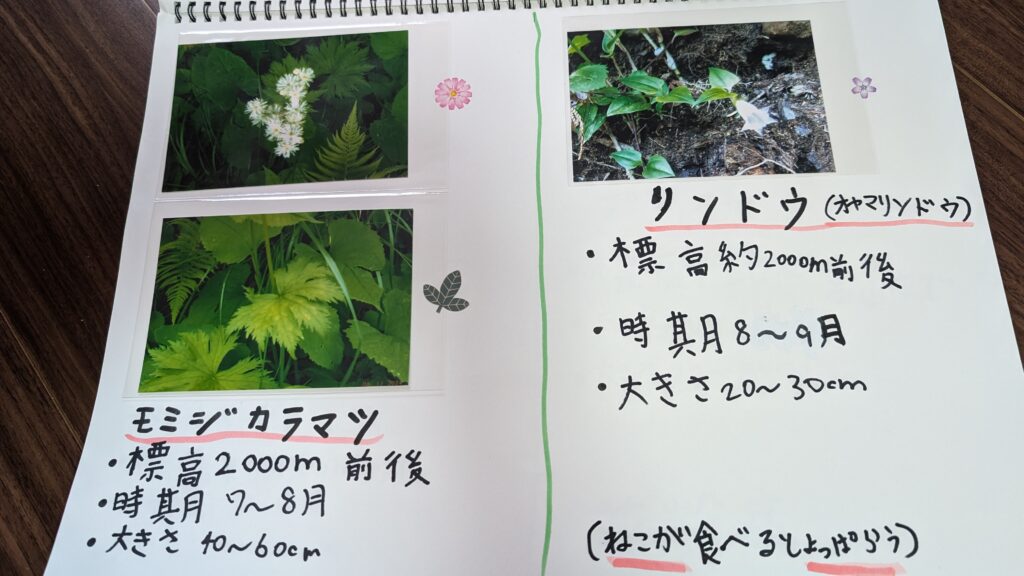 モミジカラマツ
・標高2000m 前後
・時期 7〜8月
・大きさ 40〜60cm
リンドウ(オヤマリンドウ)
・標高約2000m前後
・時期 8〜9月
・大きさ 20〜30cm
(ねこが食べるとよっぱらう)